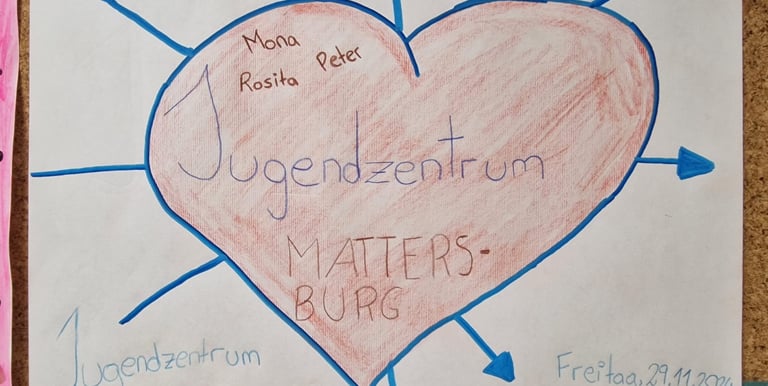 Mona
Rosita Peter
Jugendzentrum
MATTERS-
BURG
Jugendzentrum
Freitag, 29.11.2024